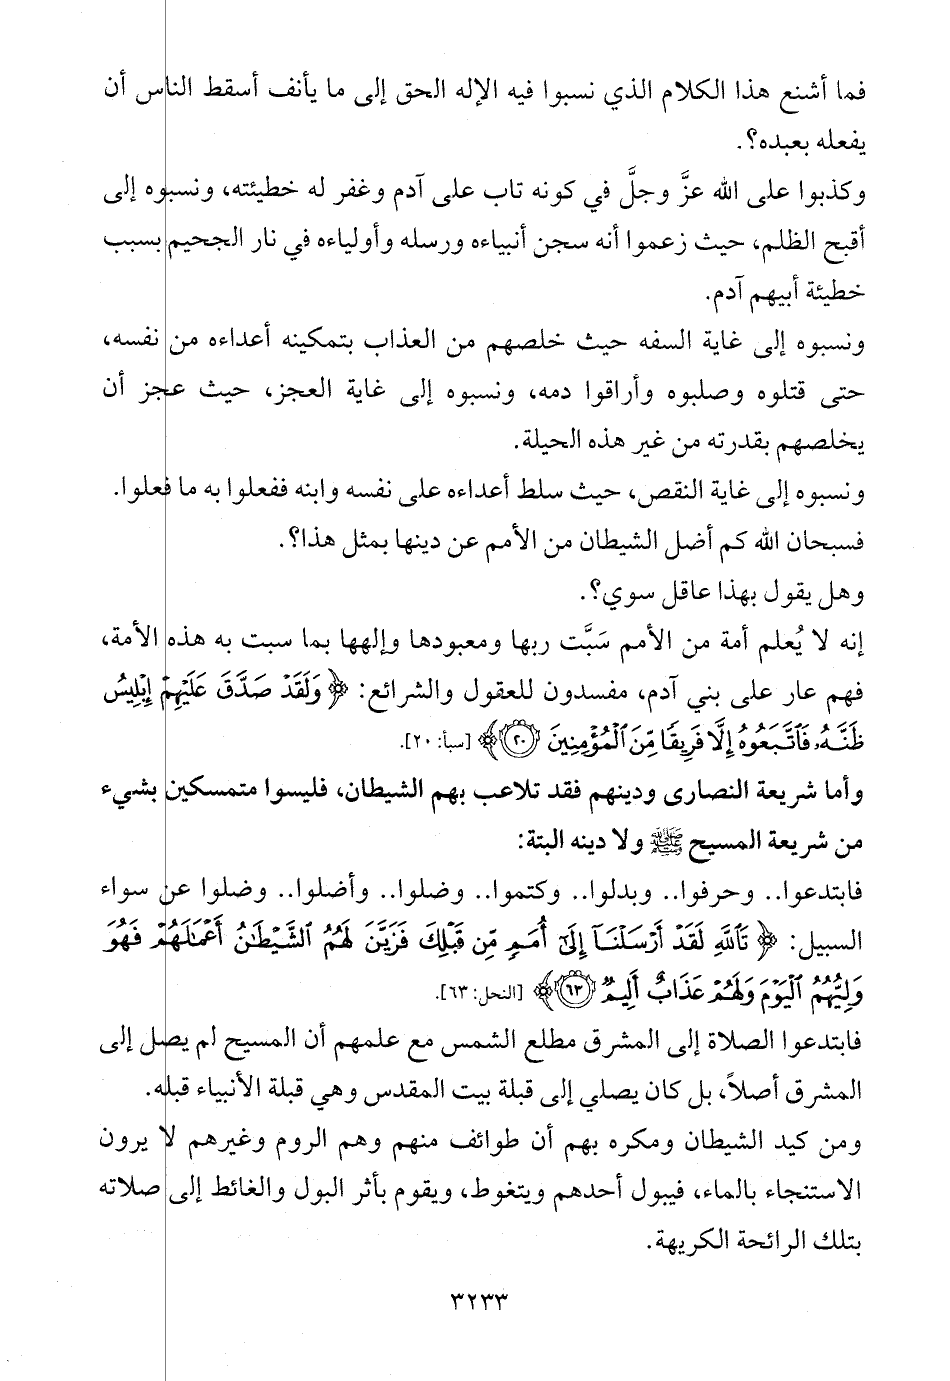 فما أشنع هذا الكلام الذي نسبوا فيه الإله الحق إلى ما يأنف أسقط الناس أن
يفعله بعبده؟.
وكذبوا على الله عزَّ وجلَّ في كونه تاب على آدم وغفر له خطيئته، ونسبوه إلى
أقبح الظلم، حيث زعموا أنه سجن أنبياءه ورسله وأولياءه في نار الجحيم بسبب
خطيئة أبيهم آدم.
ونسبوه إلى غاية السفه حيث خلصهم من العذاب بتمكينه أعداءه من نفسه،
حتى قتلوه وصلبوه وأراقوا دمه، ونسبوه إلى غاية العجز، حيث عجز أن
يخلصهم بقدرته من غير هذه الحيلة.
ونسبوه إلى غاية النقص، حيث سلط أعداءه على نفسه وابنه ففعلوا به ما فعلوا.
فسبحان الله كم أضل الشيطان من الأمم عن دينها بمثل هذا؟.
وهل يقول بهذا عاقل سوي؟.
إنه لا يُعلم أمة من الأمم سَبَّت ربها ومعبودها وإلهها بما سبت به هذه الأمة،
فهم عار على بني آدم، مفسدون للعقول والشرائع: ﴿وَلَقَدْ صَدَّقَ عَلَيْهِمْ إِبْلِيسُ
ظَنَّهُۥ فَٱتَّبَعُوهُ إِلَّا فَرِيقًا مِّنَ ٱلْمُؤْمِنِينَ ﴿٢٠﴾﴾ [سبأ: ٢٠].
وأما شريعة النصارى ودينهم فقد تلاعب بهم الشيطان، فليسوا متمسكين بشيء
من شريعة المسيح ﷺ ولا دينه البتة:
فابتدعوا.. وحرفوا.. وبدلوا.. وكتموا.. وضلوا.. وأضلوا.. وضلوا عن سواء
السبيل: ﴿تَٱللَّهِ لَقَدْ أَرْسَلْنَآ إِلَىٰٓ أُمَمٍ مِّن قَبْلِكَ فَزَيَّنَ لَهُمُ ٱلشَّيْطَٰنُ أَعْمَٰلَهُمْ فَهُوَ
وَلِيُّهُمُ ٱلْيَوْمَ وَلَهُمْ عَذَابٌ أَلِيمٌ ﴿٦٣﴾﴾ [النحل: ٦٣].
فابتدعوا الصلاة إلى المشرق مطلع الشمس مع علمهم أن المسيح لم يصل إلى
المشرق أصلاً، بل كان يصلي إلى قبلة بيت المقدس وهي قبلة الأنبياء قبله.
ومن كيد الشيطان ومكره بهم أن طوائف منهم وهم الروم وغيرهم لا يرون
الاستنجاء بالماء، فيبول أحدهم ويتغوط، ويقوم بأثر البول والغائط إلى صلاته
بتلك الرائحة الكريهة.
٣٢٣٣